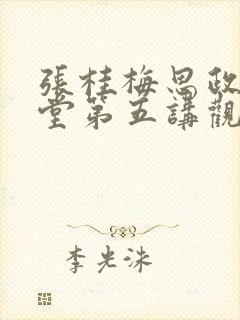 張桂梅思政
堂第五講觀
李光洙